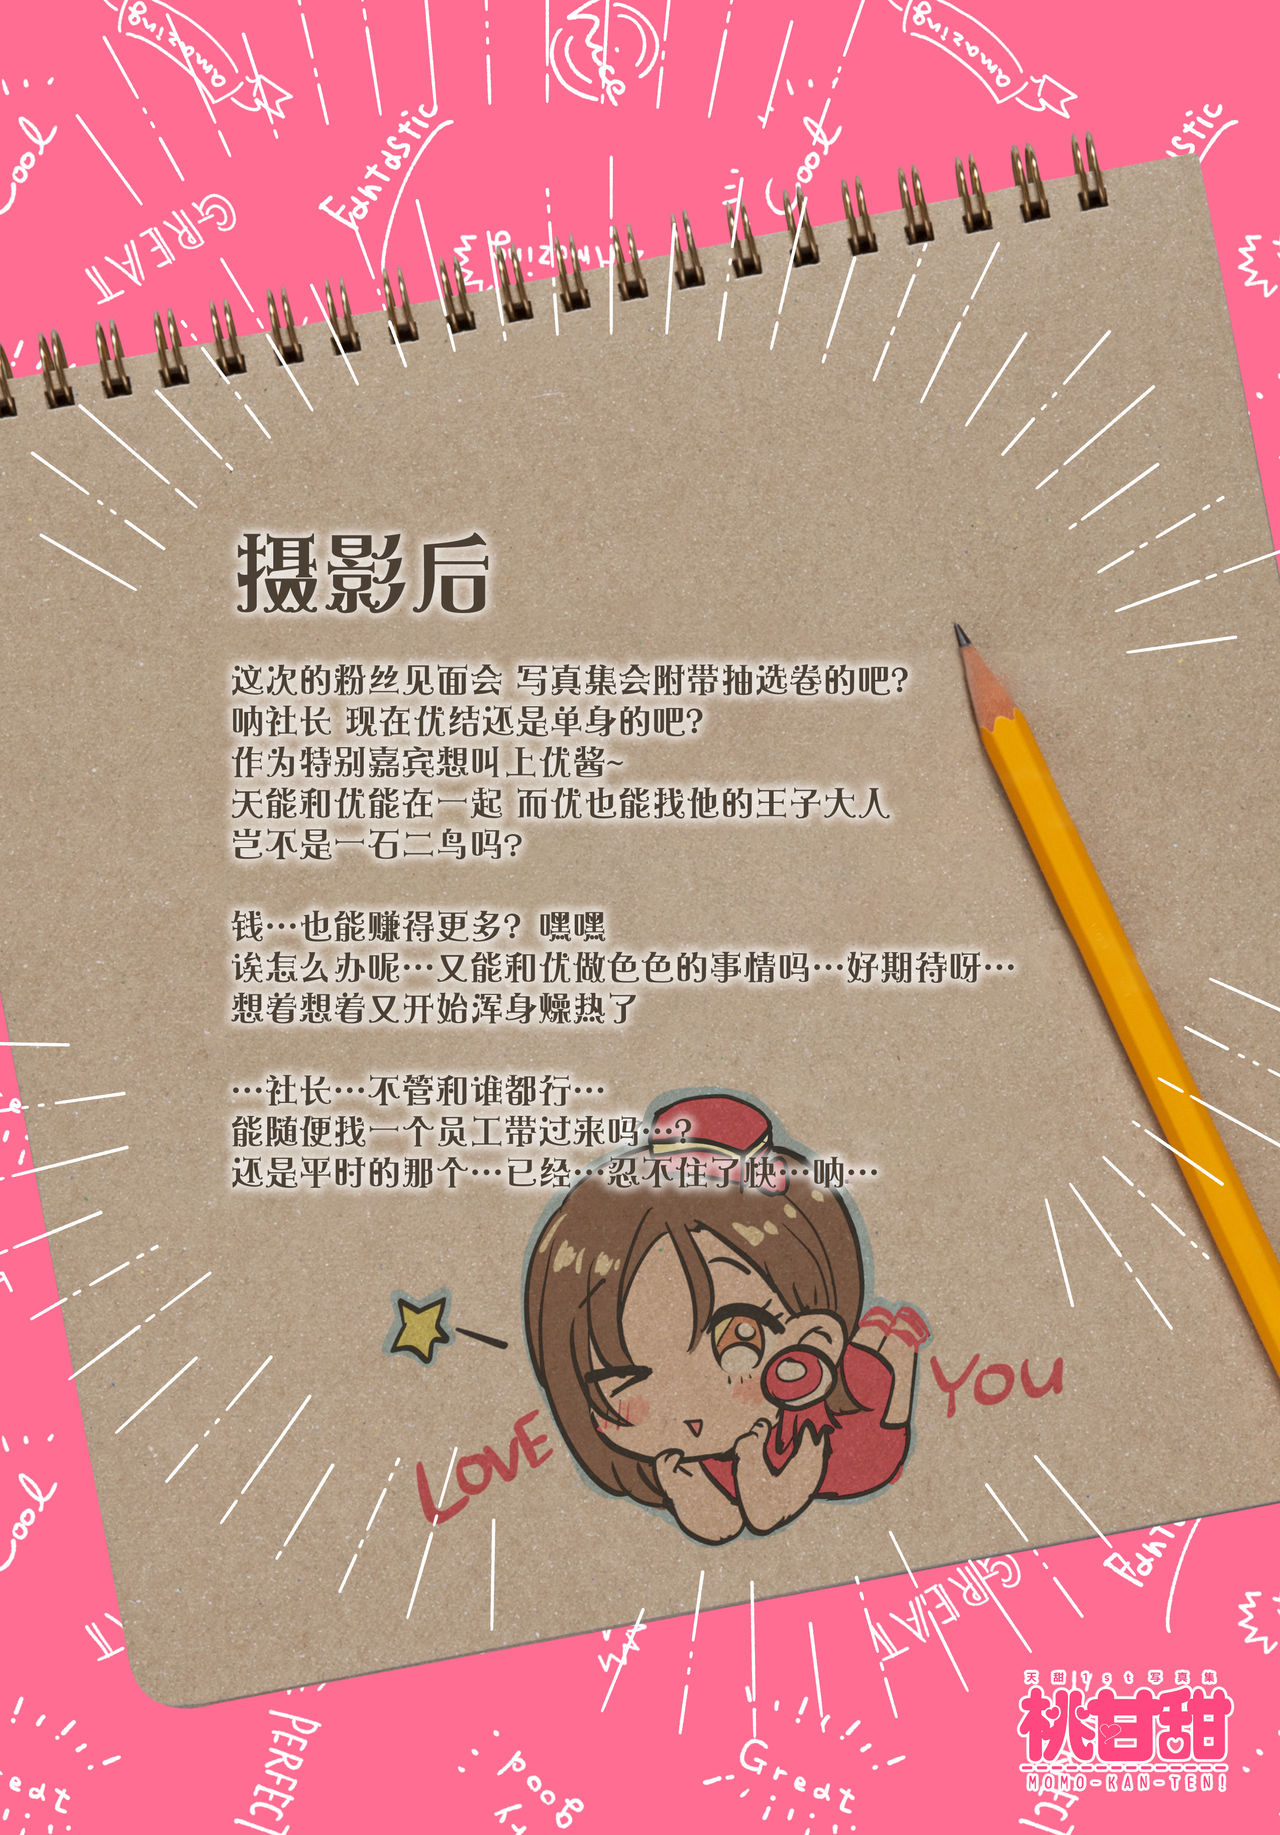 amazing
amazing
Nice
Cool
Fantastic
Cool
GREAT
Amazing
摄影后
这次的粉丝见面会 写真集会附带抽选卷的吧?
呐社长 现在优结还是单身的吧?
作为特别嘉宾想叫上优酱~
天能和优能在一起 而优也能找他的王子大人
岂不是一石二鸟吗?
钱…也能赚得更多? 嘿嘿
诶怎么办呢…又能和优做色色的事情吗…好期待呀…
想着想着又开始浑身燥热了
…社长…不管和谁都行…
能随便找一个员工带过来吗…?
还是平时的那个…已经…忍不住了快…呐…
LOVE YOU
Cool
GREAT
PERFECT
good
Great
天甜1st写真集
桃甘甜
MOMO-KAN-TEN!